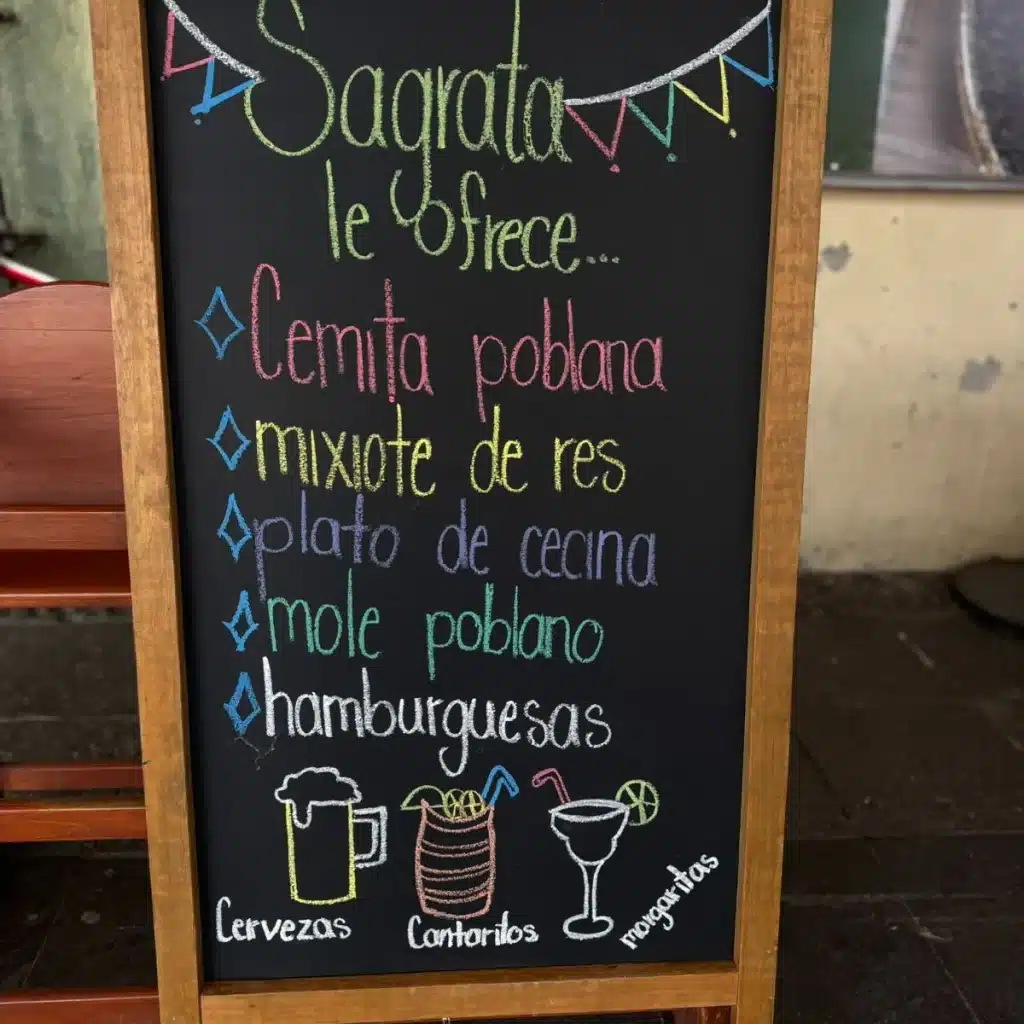 Sagrata
le ofrece...
Cemita poblana
mixiote de res
plato de cecina
mole poblano
hamburguesas
Cervezas
Cantaritos
margaritas